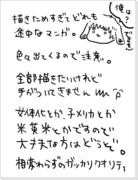 俺は
描きためすぎてどれも
途中なマンガ。
色々出てくるので注意。
全部描きたいけれど
手がついてきません
女体化とか、子メリカとか
米英米とかですので
大丈夫な方はどうぞ。
相変わらずのガッカリクオリティ